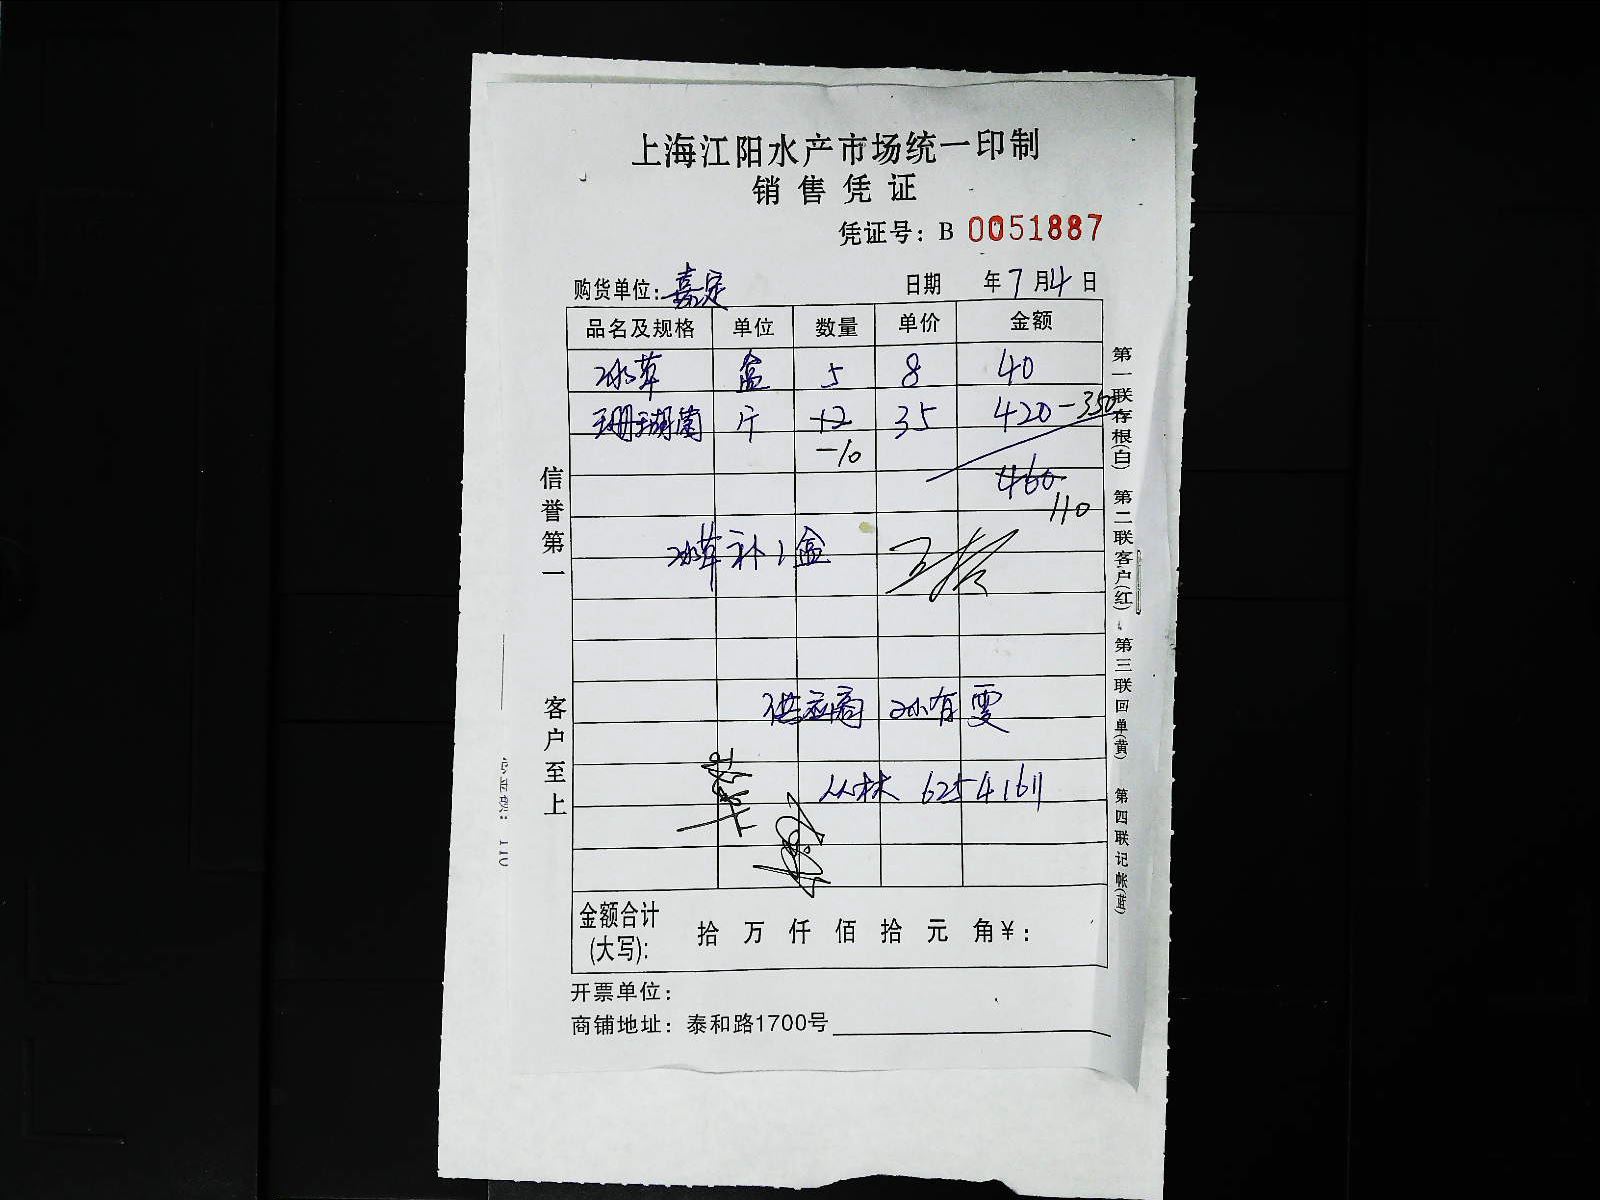 上海江阳水产市场统一印制
销售凭证
凭证号: B 0051887
购货单位: 嘉定 日期 年 7 月 4 日
品名及规格 单位 数量 单价 金额
冰草 盒 5 8 40
珊瑚菌 斤 12 35 420 -350
-10
460
110
冰草补1盒
供应商 孙有雯
丛林 62541611
金额合计
(大写): 拾 万 仟 佰 拾 元 角 ¥:
开票单位:
商铺地址: 泰和路1700号
信誉第一
客户至上
第一联存根(白) 第二联客户(红) 第三联回单(黄) 第四联记帐(蓝)